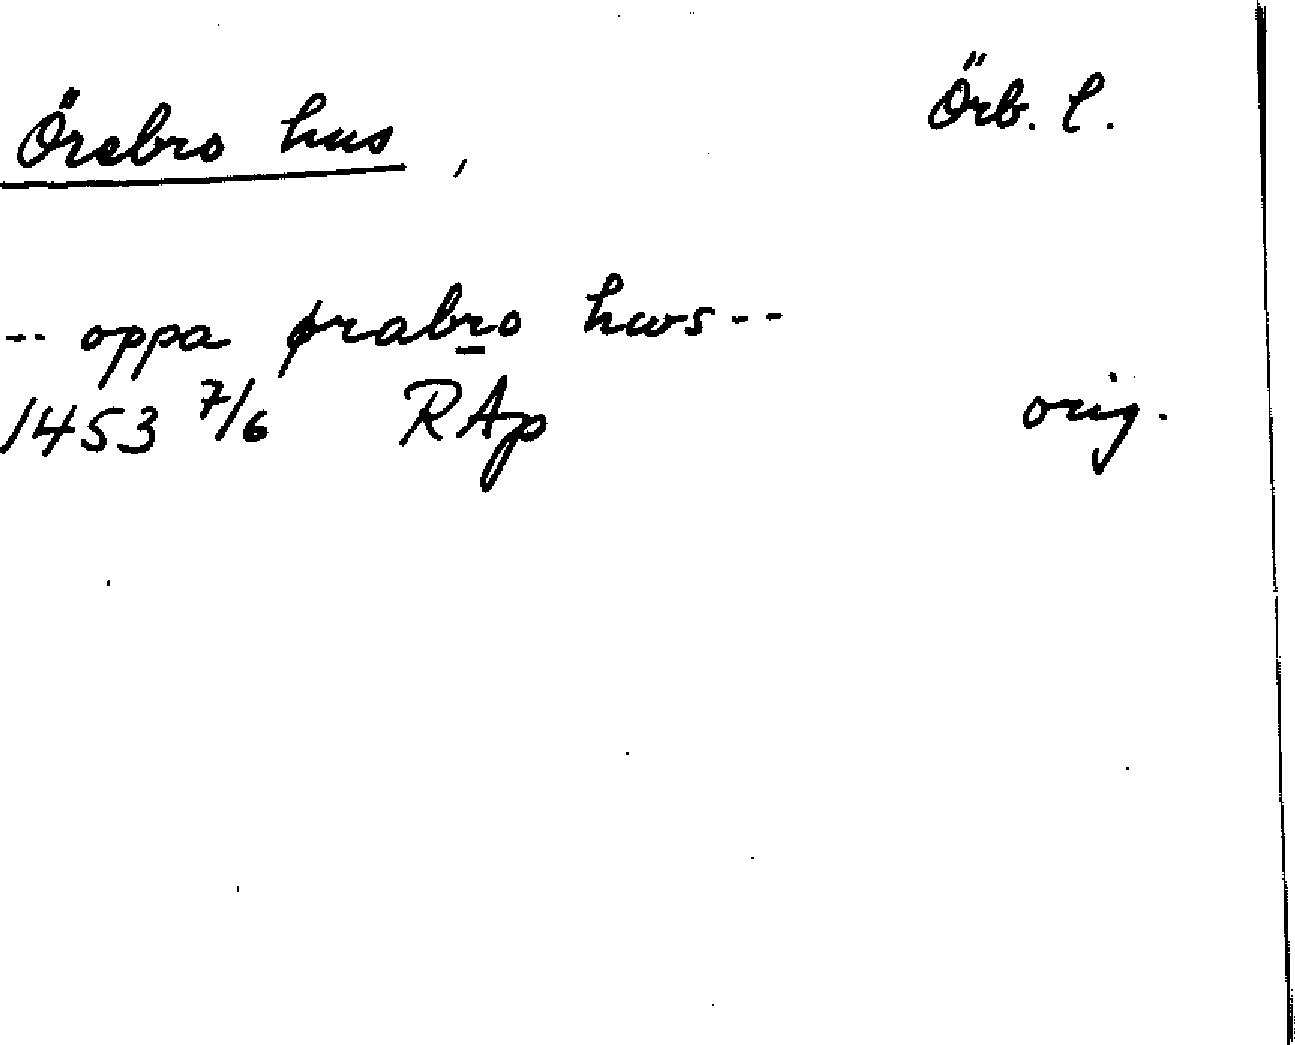 Örb. l.
Örebro hus,
-- oppa ørabro hws --
1453 7/6 RAp orig.